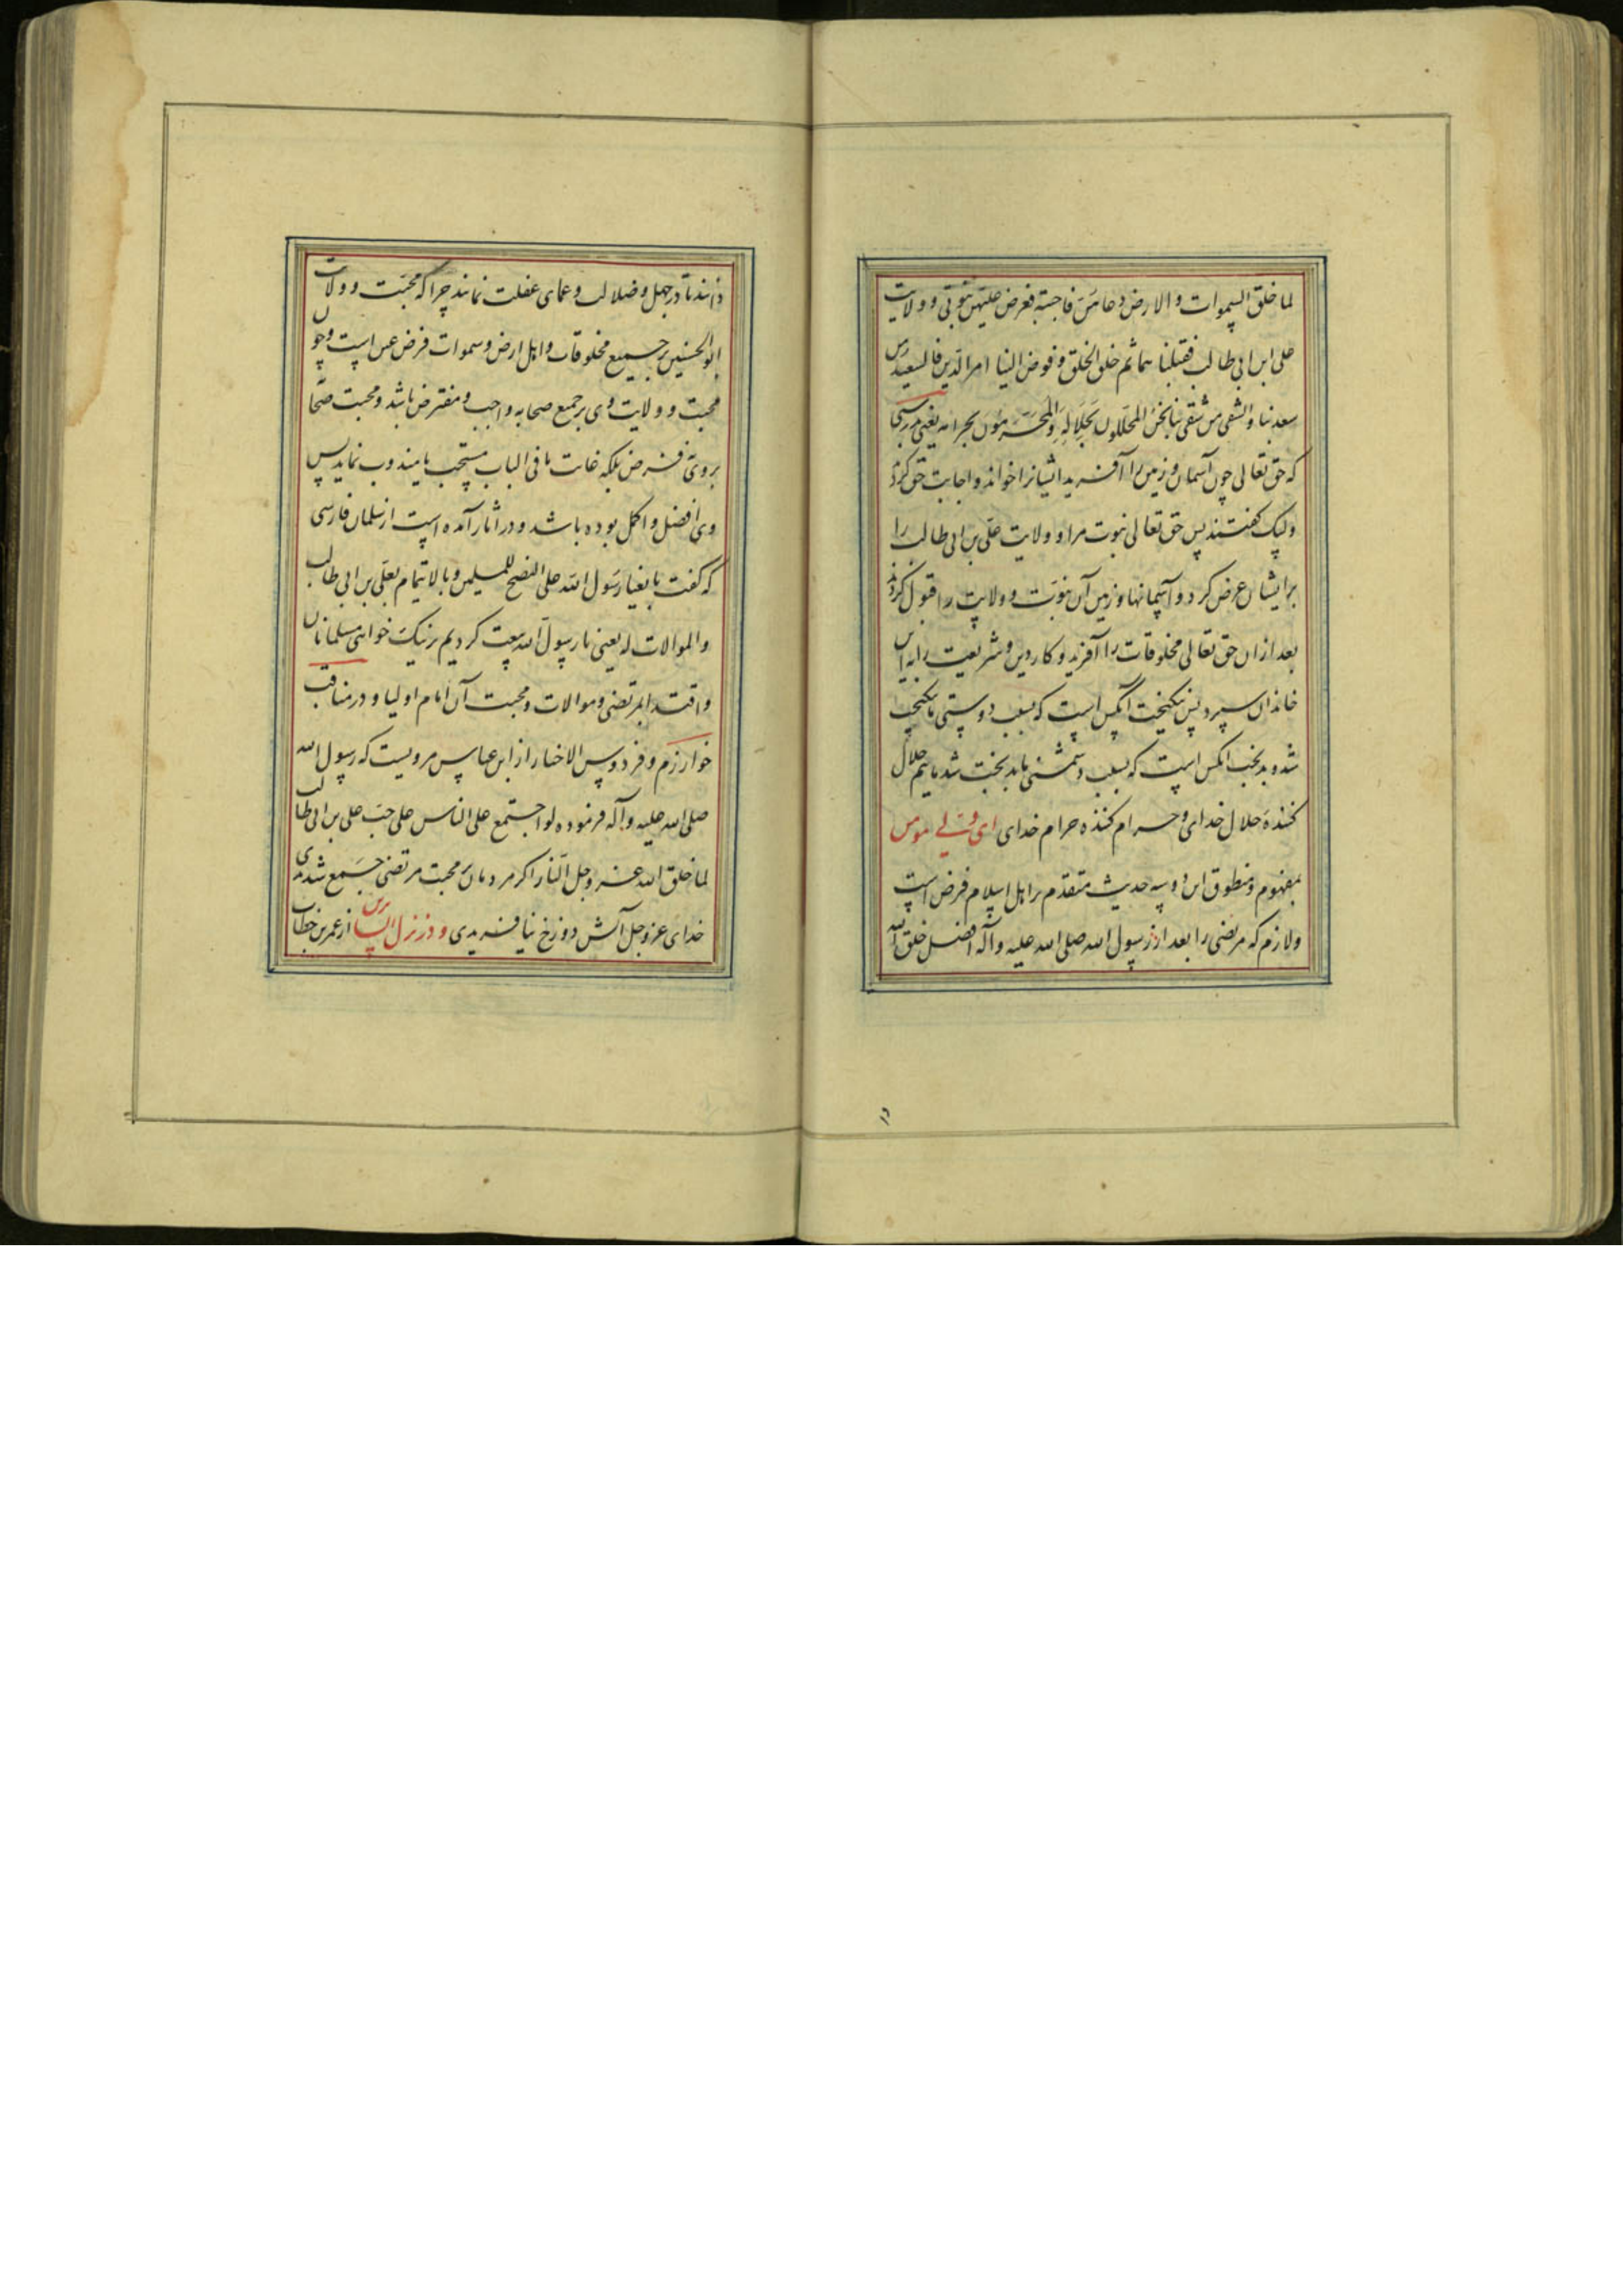 لما خلق السموات والارض دعاهن فاجبته فعرض علیهن نبوتی و ولایت
علی ابن ابی طالب فقبلنا هما ثم خلق الخلق و فوض الینا امر الدین فالسعید من
سعد بنا والشقی من شقی بنا نحن المحللون بحلاله والمحرمون بحرامه یعنی بدرستی
که حق تعالی چون آسمان و زمین را آفرید ایشانرا خواند و اجابت حق کردند
ولبیک گفتند پس حق تعالی نبوت مرا و ولایت علی بن ابی طالب را
برایشان عرض کرد و آسمانها و زمین آن نبوت و ولایت را قبول کردند
بعد ازان حق تعالی مخلوقات را آفرید و کار دین و شریعت را باین
خاندان سپرد پس نیکبخت آنکس است که بسبب دوستی ما نیکبخت
شد و بدبخت آنکس است که بسبب دشمنی ما بدبخت شد مائیم حلال
کنندهٔ حلال خدای و حرام کننده حرام خدای ای ولی مومن
بمفهوم و منطوق این دو سه حدیث متقدم بر اهل اسلام فرض است
ولازم که مرتضی را بعد از رسول الله صلی الله علیه وآله افضل خلق الله
دانند تا در جهل و ضلالت و عمای غفلت نمانند چرا که محبت و ولایت
ابوالحسنین بر جمیع مخلوقات و اهل ارض و سموات فرض عین است و چون
محبت و ولایت وی بر جمیع صحابه واجب و مفترض باشد و محبت صحابه
بروی فرض بلکه غایت ما فی الباب مستحب یا مندوب نماید پس
وی افضل و اکمل بوده باشد و در آثار آمده است از سلمان فارسی
که گفت بایعنا رسول الله علی النصح للمسلمین و بالایتمام بعلی بن ابی طالب
والموالات له یعنی با رسول الله بیعت کردیم بر نیک خواهی مسلمانان
و اقتدا بمرتضی و موالات و محبت آن امام اولیا و در مناقب
خوارزم و فردوس الاخبار از ابن عباس مرویست که رسول الله
صلی الله علیه وآله فرموده لو اجتمع علی الناس علی حب علی بن ابی طالب
لما خلق الله عز وجل النار اگر مردمان بر محبت مرتضی جمع شدندی
خدای عز وجل آتش دوزخ نیافریدی و در نزل السائرین از عمر بن خطاب